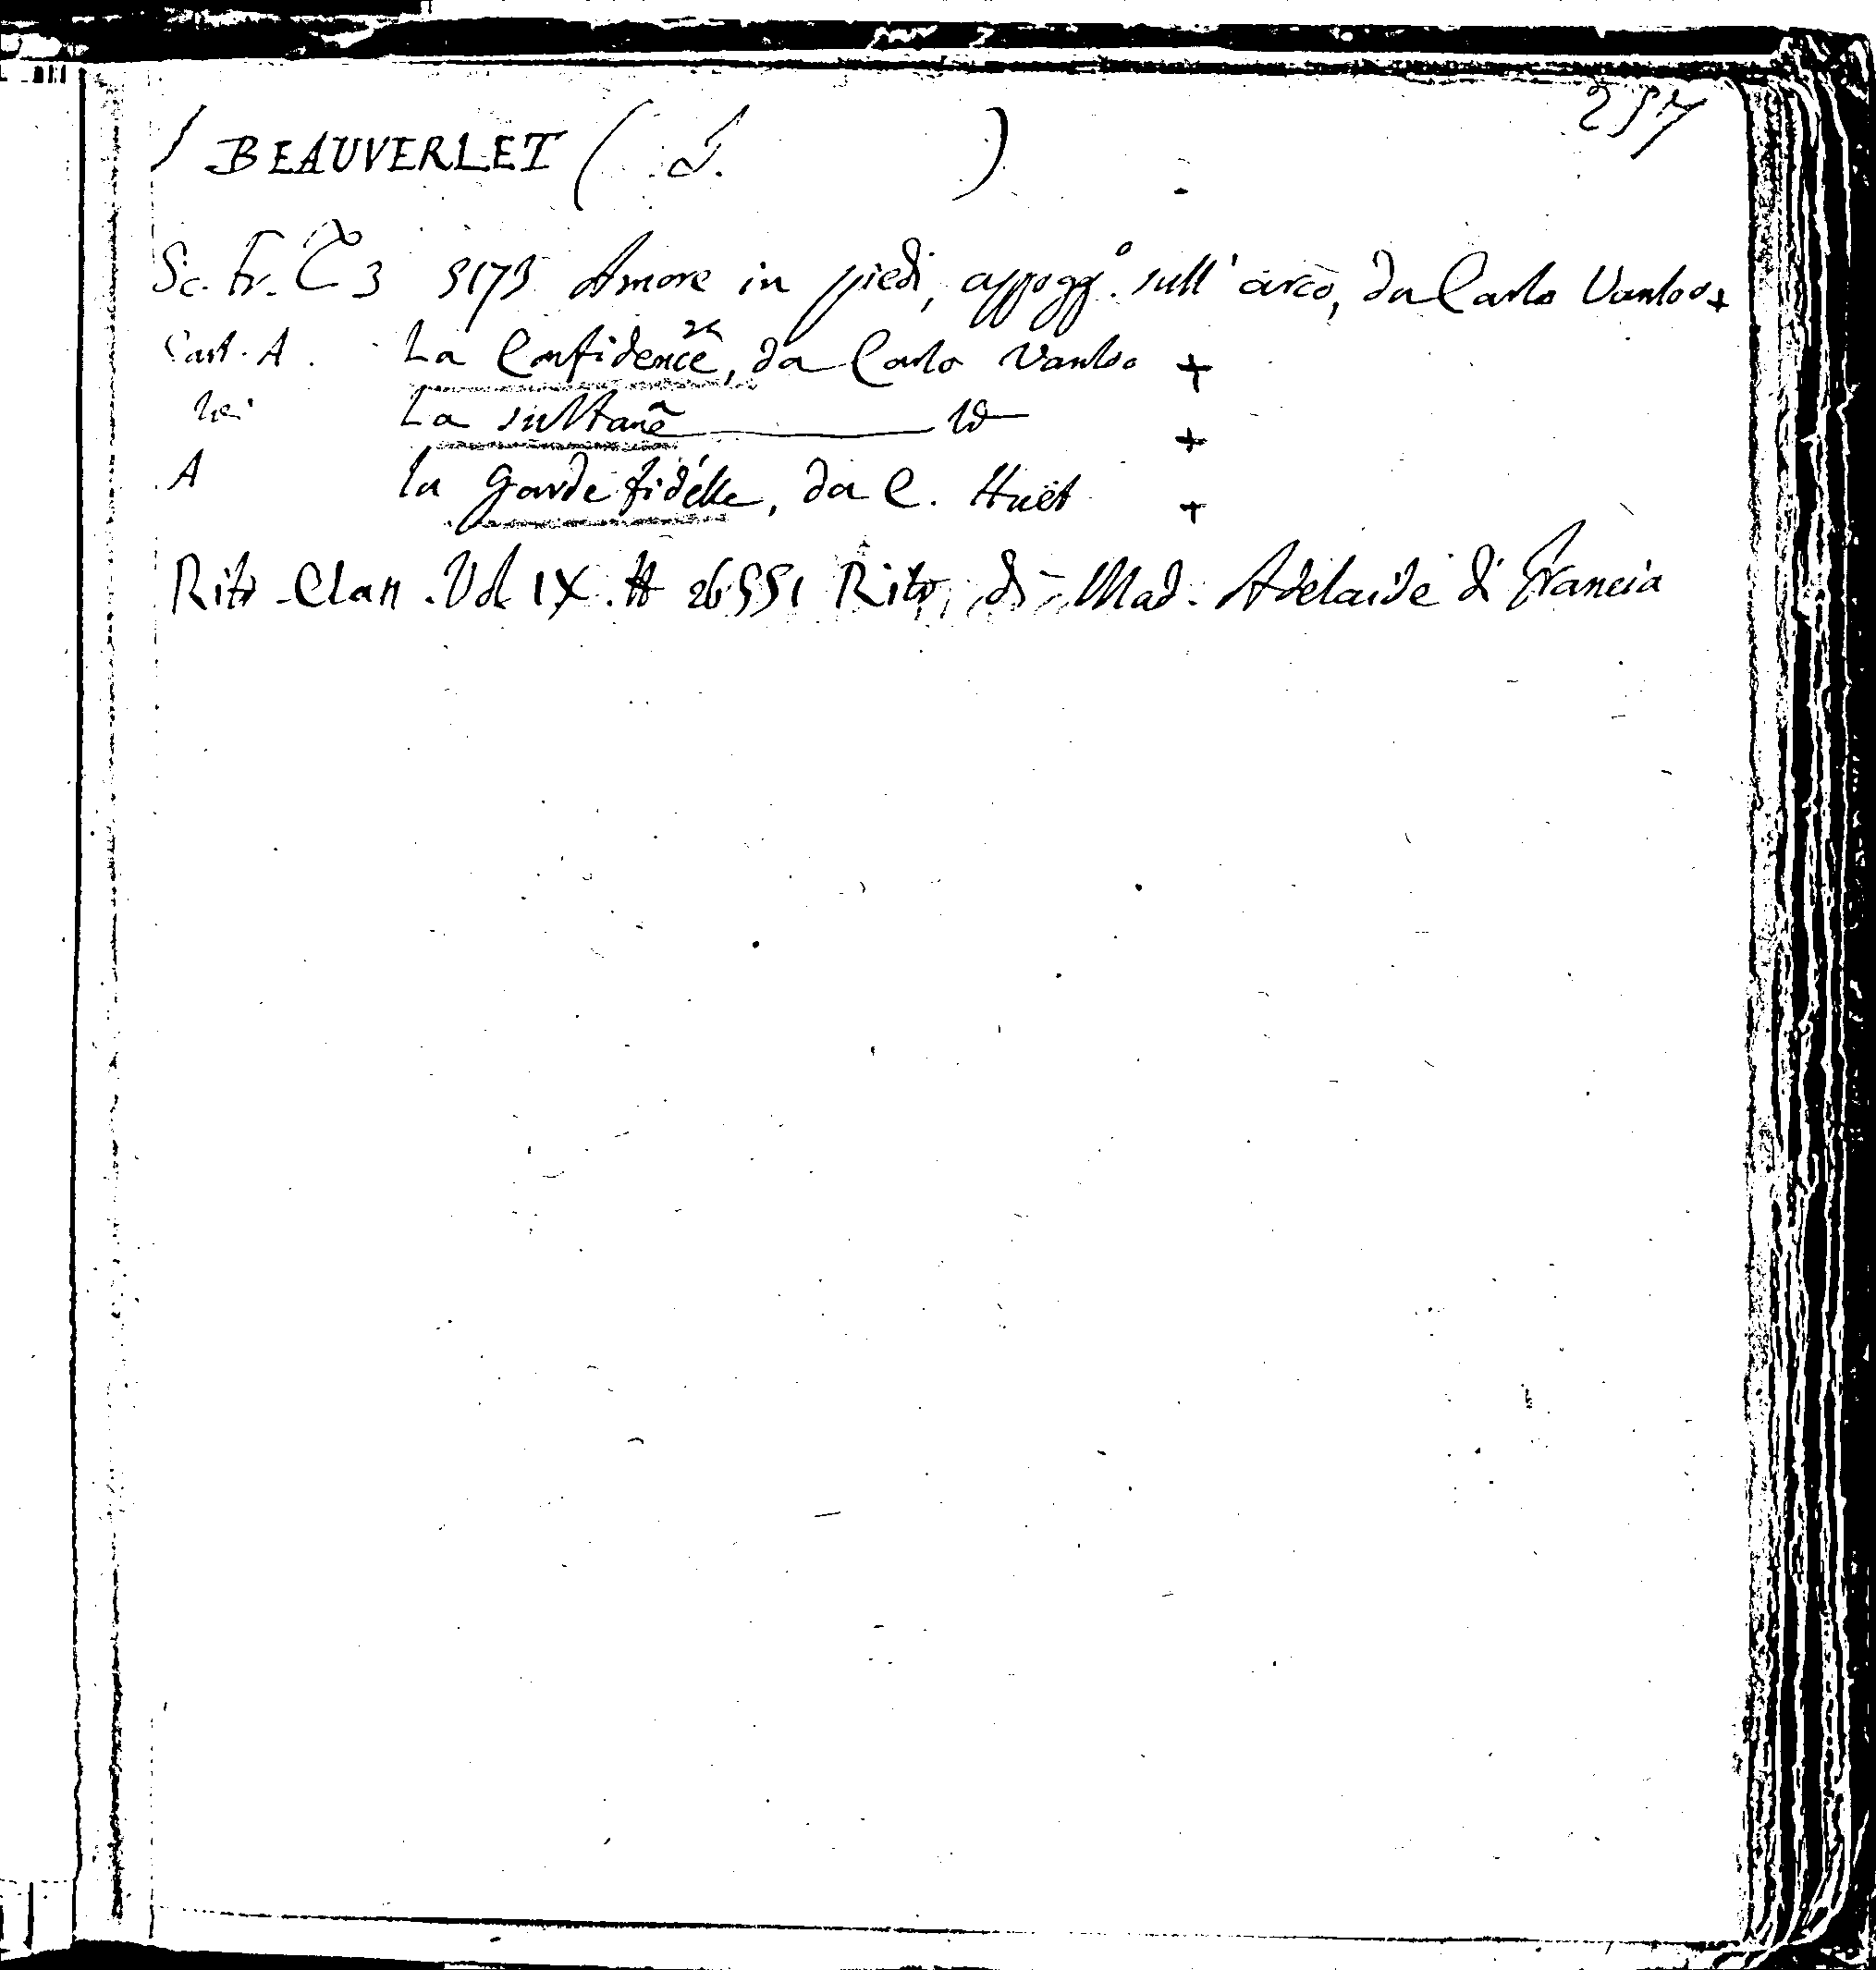 257
/ BEAUVERLET ( J. )
Sc. Fr. C 3 5173 Amore in piedi, appogg.º sull'arco, da Carlo Vanloo +
Cart. A. La Confidence, da Carlo Vanloo +
La sultane ——— Id +
A la garde fidélle, da C. Huët +
Ritr. Clan. Vol. IX. # 26551 Ritr. di Mad. Adelaide di Francia